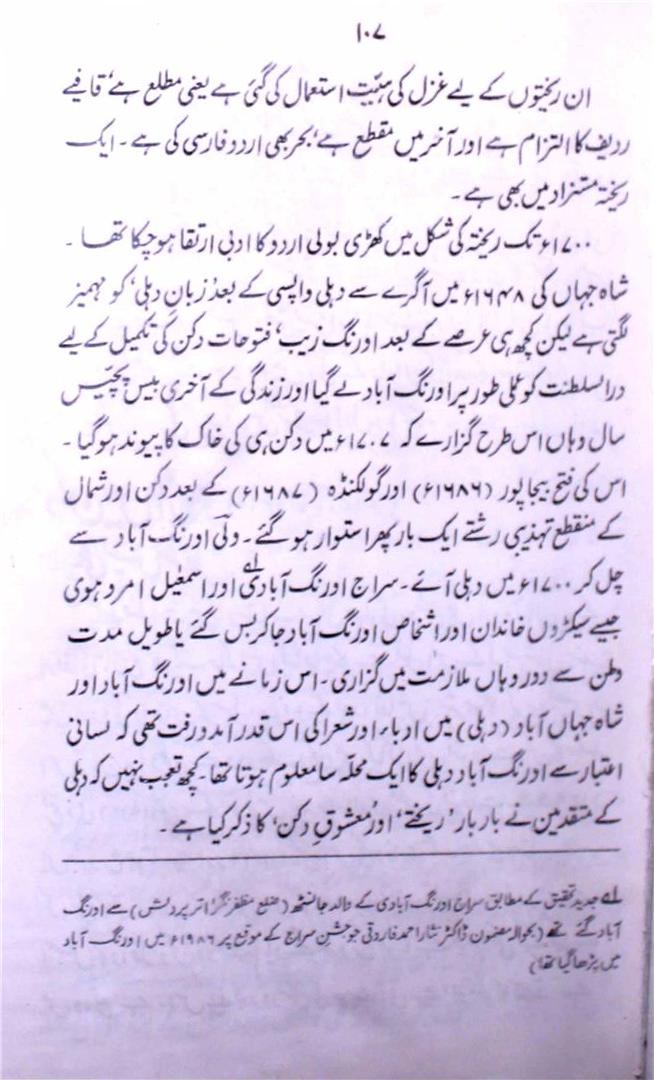 ۱۰۷
ان ریختوں کے لیے غزل کی ہیئت استعمال کی گئی ہے یعنی مطلع ہے، قافیے
ردیف کا التزام ہے اور آخر میں مقطع ہے، بحر بھی اردو فارسی کی ہے۔ ایک
ریختہ مستزاد میں بھی ہے۔
۱۷۰۰ء تک ریختہ کی شکل میں کھڑی بولی اردو کا ادبی ارتقا ہو چکا تھا۔
شاہ جہاں کی ۱۶۴۸ء میں آگرے سے دہلی واپسی کے بعد 'زبانِ دہلی' کو مہمیز
لگتی ہے لیکن کچھ ہی عرصے کے بعد اورنگ زیب، فتوحات دکن کی تکمیل کے لیے
درالسلطنت کو عملی طور پر اورنگ آباد لے گیا اور زندگی کے آخری بیس پچیس
سال وہاں اس طرح گزارے کہ ۱۷۰۷ء میں دکن ہی کی خاک کا پیوند ہو گیا۔
اس کی فتح بیجاپور (۱۶۸۶ء) اور گولکنڈہ (۱۶۸۷ء) کے بعد دکن اور شمال
کے منقطع تہذیبی رشتے ایک بار پھر استوار ہو گئے۔ ولی اورنگ آباد سے
چل کر ۱۷۰۰ء میں دہلی آئے۔ سراج اورنگ آبادی لے اور اسمٰعیل امروہوی
جیسے سیکڑوں خاندان اور اشخاص اورنگ آباد جا کر بس گئے یا طویل مدت
وطن سے دور وہاں ملازمت میں گزاری۔ اس زمانے میں اورنگ آباد اور
شاہ جہاں آباد (دہلی) میں ادباء اور شعرا کی اس قدر آمد و رفت تھی کہ لسانی
اعتبار سے اورنگ آباد دہلی کا ایک محلہ سا معلوم ہوتا تھا۔ کچھ تعجب نہیں کہ دہلی
کے متقدمین نے بار بار 'ریختے' اور 'معشوقِ دکن' کا ذکر کیا ہے۔
لے جدید تحقیق کے مطابق سراج اورنگ آبادی کے والد جانسٹھ (ضلع مظفر نگر، اتر پردیش) سے اورنگ
آباد گئے تھے (بحوالہ مضمون ڈاکٹر نثار احمد فاروقی جو جشنِ سراج کے موقع پر ۱۹۸۶ء میں اورنگ آباد
میں پڑھا گیا تھا)